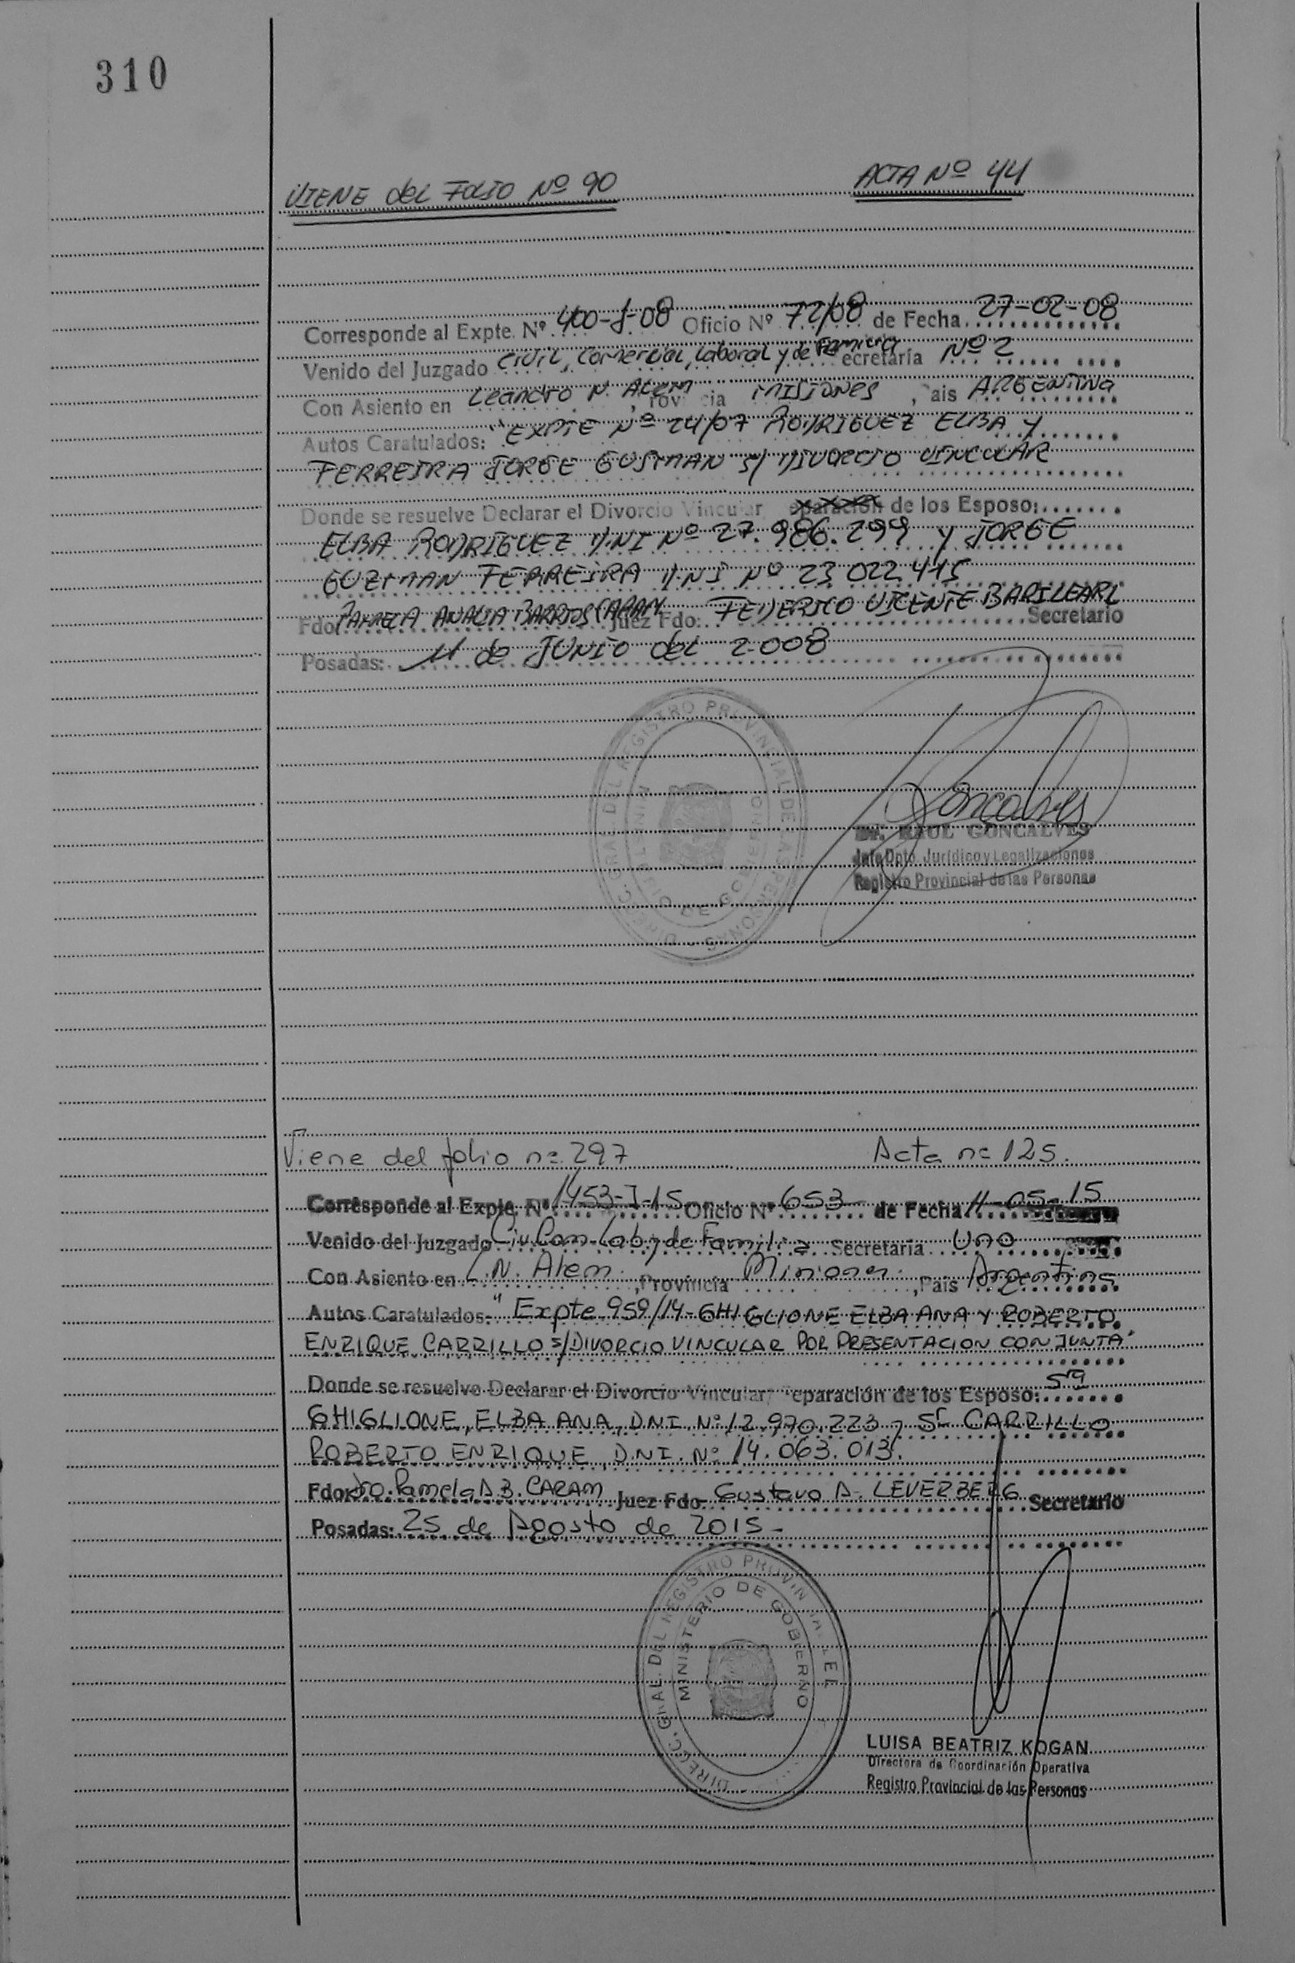 310
VIENE del FOLIO Nº 90 ACTA Nº 44
Corresponde al Expte. Nº 400-J-08 Oficio Nº 72/08 de Fecha 27-02-08
Venido del Juzgado Civil, Comercial, Laboral y de Familia ecretaría Nº 2
Con Asiento en Leandro N. Alem, rov cia MISIONES, Pais ARGENTINA
Autos Caratulados: "EXPTE Nº 24/07 RODRIGUEZ ELBA Y
FERREIRA JORGE GUSMAN S/ DIVORCIO VINCULAR
Donde se resuelve Declarar el Divorcio Vincular eparación de los Esposo:
ELBA RODRIGUEZ D.NI Nº 27.986.299 y JORGE
GUZMAN FERREIRA D.NI Nº 23 022 415
Fdo: PAMELA ANALIA BARRIOS CARAM Juez Fdo: FEDERICO VICENTE Secretario
Posadas: 11 de JUNIO del 2.008
DIRECC. GRAL. DEL REGISTRO PROVINCIAL DE LAS PERSONAS
Goncalves
Dr. RAUL GONCALVES
Jefe Dpto. Jurídico y Legalizaciones
Registro Provincial de las Personas
Viene del folio nº 297 Acta nº 125.
Corresponde al Expte. Nº 1453-I-15 Oficio Nº 653 de Fecha 11-05-15
Venido del Juzgado Civ. Com. Lab y de Familia Secretaría Uno
Con Asiento en L.N. Alem, Provincia Misiones, Pais Argentina
Autos Caratulados: "Expte 959/14- GHIGLIONE ELBA ANA Y ROBERTO
ENRIQUE CARRILLO S/DIVORCIO VINCULAR POR PRESENTACION CONJUNTA"
Donde se resuelve Declarar el Divorcio Vincular, eparación de los Esposo: Sra
GHIGLIONE, ELBA ANA, D.N.I. Nº 12.970.223 y Sr CARRILLO
ROBERTO ENRIQUE, D.N.I. Nº 14.063.013.
Fdo: Dra. Pamela A.B. CARAM Juez Fdo- Gustavo A. LEVERBERG Secretario
Posadas: 25 de Agosto de 2015-
DIRECC. GRAL. DEL REGISTRO PROVIN
MINISTERIO DE GOBIERNO
LUISA BEATRIZ KOGAN
Directora de Coordinación Operativa
Registro Provincial de las Personas